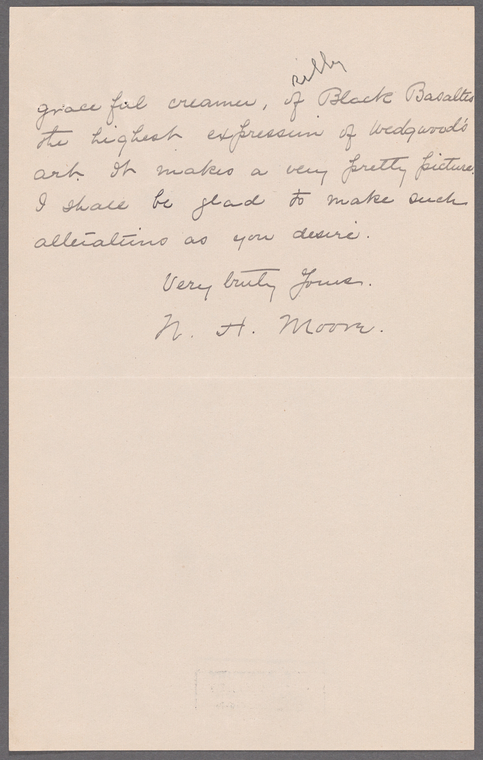 graceful creamer, of Black Basaltes
the highest expression of Wedgwood's
art. It makes a very pretty picture.
I shall be glad to make such
alterations as you desire.
Very truly Yours.
N. H. Moore.